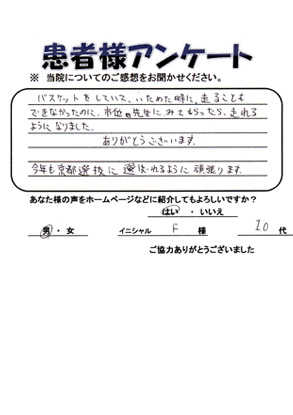 患者様アンケート
※ 当院についてのご感想をお聞かせください。
バスケットをしていて、いためた時に、走ることも
できなかったのに、市位先生に みてもらったら、走れる
ようになりました。
ありがとうございます。
今年も京都選抜に 選ばれるように頑張ります
あなた様の声をホームページなどに紹介してもよろしいですか？
はい ・ いいえ
男 ・ 女 イニシャル F 様 10 代
ご協力ありがとうございました